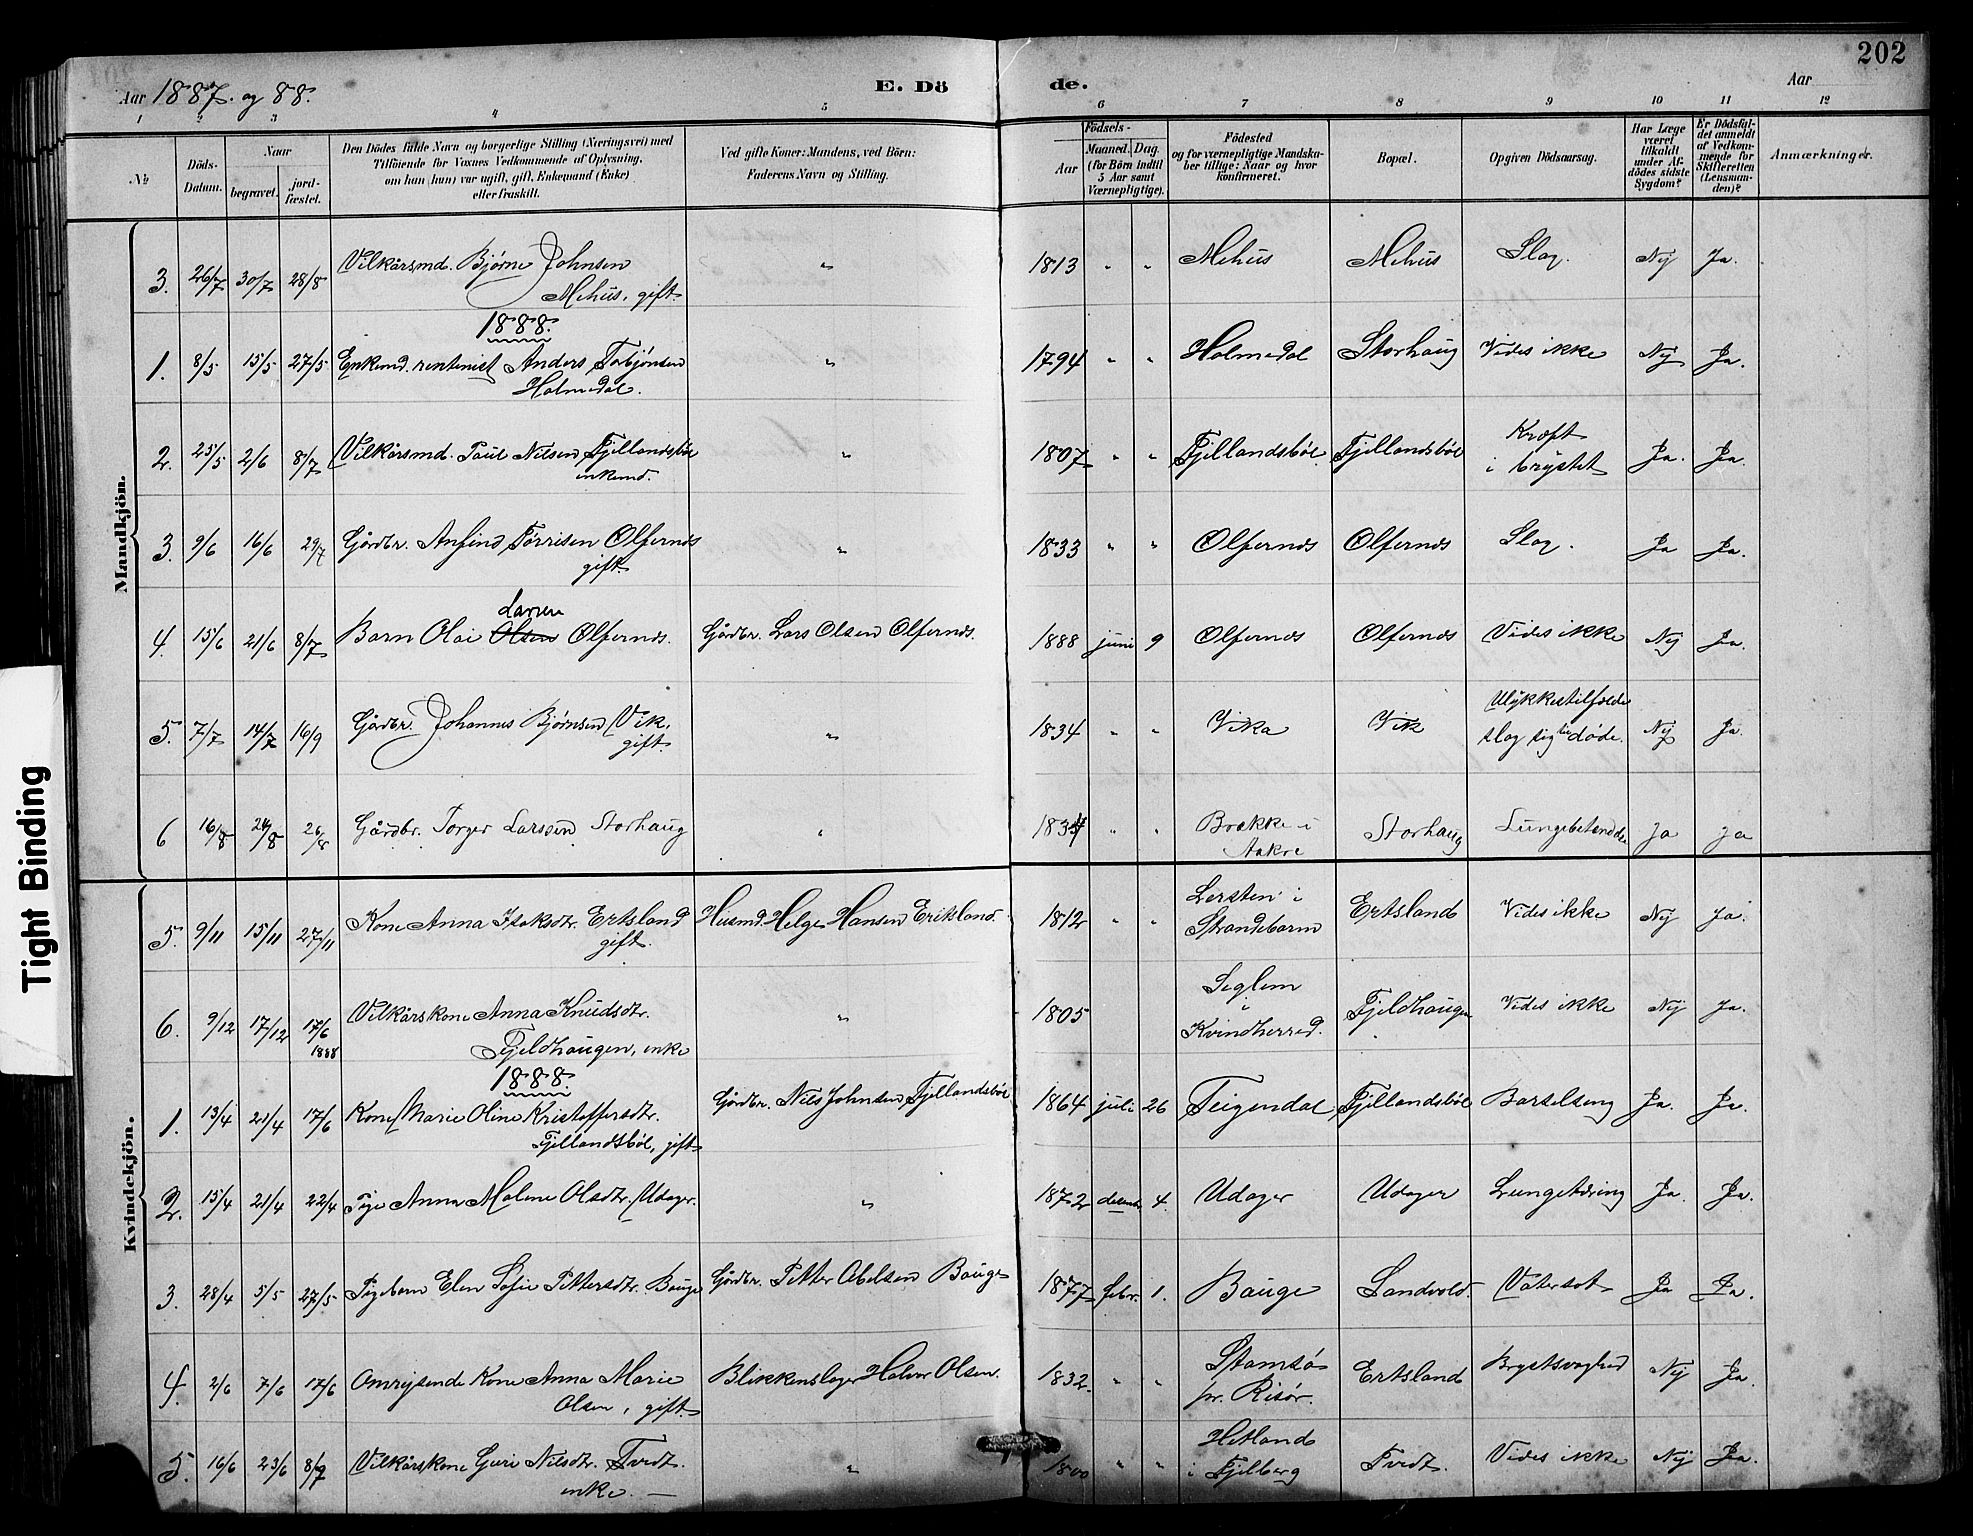 202
Aar 1887. og 88.
E. Dö de.
Aar
1 2 3 4 5 6 7 8 9 10 11 12
№
Döds-Datum.
Naar
begravet.
jord-fæstet.
Den Dödes fulde Navn og borgerlige Stilling (Næringsvei) med
Tilföiende for Voxnes Vedkommende af Oplysning,
om han (hun) var ugift, gift, Enkemand (Enke)
eller fraskilt.
Ved gifte Koner: Mandens, ved Börn:
Faderens Navn og Stilling.
Födsels-
Aar
Maaned. Dag.
(for Börn indtil
5 Aar samt
Værnepligtige).
Födested
og for værnepligtige Mandska-
ber tillige: Naar og hvor
konfirmeret.
Bopæl.
Opgiven Dödsaarsag.
Har Læge
været
tilkaldt
under Af-
dödes sidste
Sygdom?
Er Dödsfal-
det anmeldt
af Vedkom-
mende for
Skifteretten
(Lensman-
den)?
Anmærkninger.
Mandkjön.
3. 26/7 30/7 28/8 Vilkårsmd. Bjørne Johnsen " 1813 " " Mehus Mehus Slag. Nej Ja.
Mehus, gift
1888.
1. 8/5 15/5 27/5 Enkemd. rentenist Anders Torbjönsen " 1794 " " Holmedal Storhaug Vides ikke Nej Ja.
Holmedal.
2. 25/5 2/6 8/7 Vilkårsmd. Paul Nilsen Fjellandsbøe " 1807 " " Fjellandsbøe Fjellandsbøe Kræft
enkemd. i brystet Ja. Ja.
3. 9/6 16/6 29/7 Gårdbr. Anfind Törrisen Ølfernes " 1833 " " Ølfernes Ølfernes Slag. Ja Ja.
gift
Larsen
4. 15/6 21/6 8/7 Barn Olai Olsen Ølfernes. Gårdbr. Lars Olsen Ølfernes. 1888 juni 9 Ølfernes Ølfernes Vides ikke Nej Ja.
5. 7/7 14/7 16/9 Gårdbr. Johannes Bjørnsen Vik. " 1834 " " Vika Vik Ulykkestilfælde
gift slog sig til døde. Nej Ja.
6 16/8 24/8 26/8 Gårdbr. Torger Larssen Storhaug " 1834 " " Brekke i Storhaug Lungebetændelse Ja ja
Aakre
Kvindekjön.
5. 9/11 15/11 27/11 Kone Anna Isaksdtr. Ertsland Husmd. Helge Hansen Eriksland. 1812 " " Lersten i Ertsland Vides ikke Nej ja.
gift. Strandebarm
6. 9/12 17/12 17/6 1888 Vilkårskone Anna Knudsdtr. " 1805 Seglem Fjeldhaugen Vides ikke Nej Ja.
i
Fjeldhaugen, enke Kvindherred.
1888.
1. 13/4 21/4 17/6 Kone Marie Oline Kristoffersdtr. Gårdbr. Nils Johnsen Fjellandsbøe 1864 juli 26 Teigendal Fjellandsbøe Barselseng Ja. Ja.
Fjellandsbøe, gift
2. 15/4 21/4 22/4 Pige Anna Malene Olsdtr. Udager. " 1872 decembr 4. Udager Udager Lungetæring Ja. Ja.
3. 28/4 5/5 27/5 Pigebarn Elen Sofie Pettersdtr. Bauge Gårdbr. Petter Abelsen Bauge 1877 febr. 1. Bauge Sandvold. Vatersot Ja Ja.
4. 2/6 7/6 17/6 Omrejsende Kone Anna Marie Blikkenslager Halvor Olsen. 1832. " " Stamsö Ertsland Brystsvaghed Nej Ja.
Olsen, gift pr. Risør.
5. 16/6 23/6 8/7 Vilkårskone Guri Nilsdtr. Tvedt. " 1800 " " Hetland Tvedt. Vides ikke Nej Ja.
enke. i Fjelberg
Tight Binding